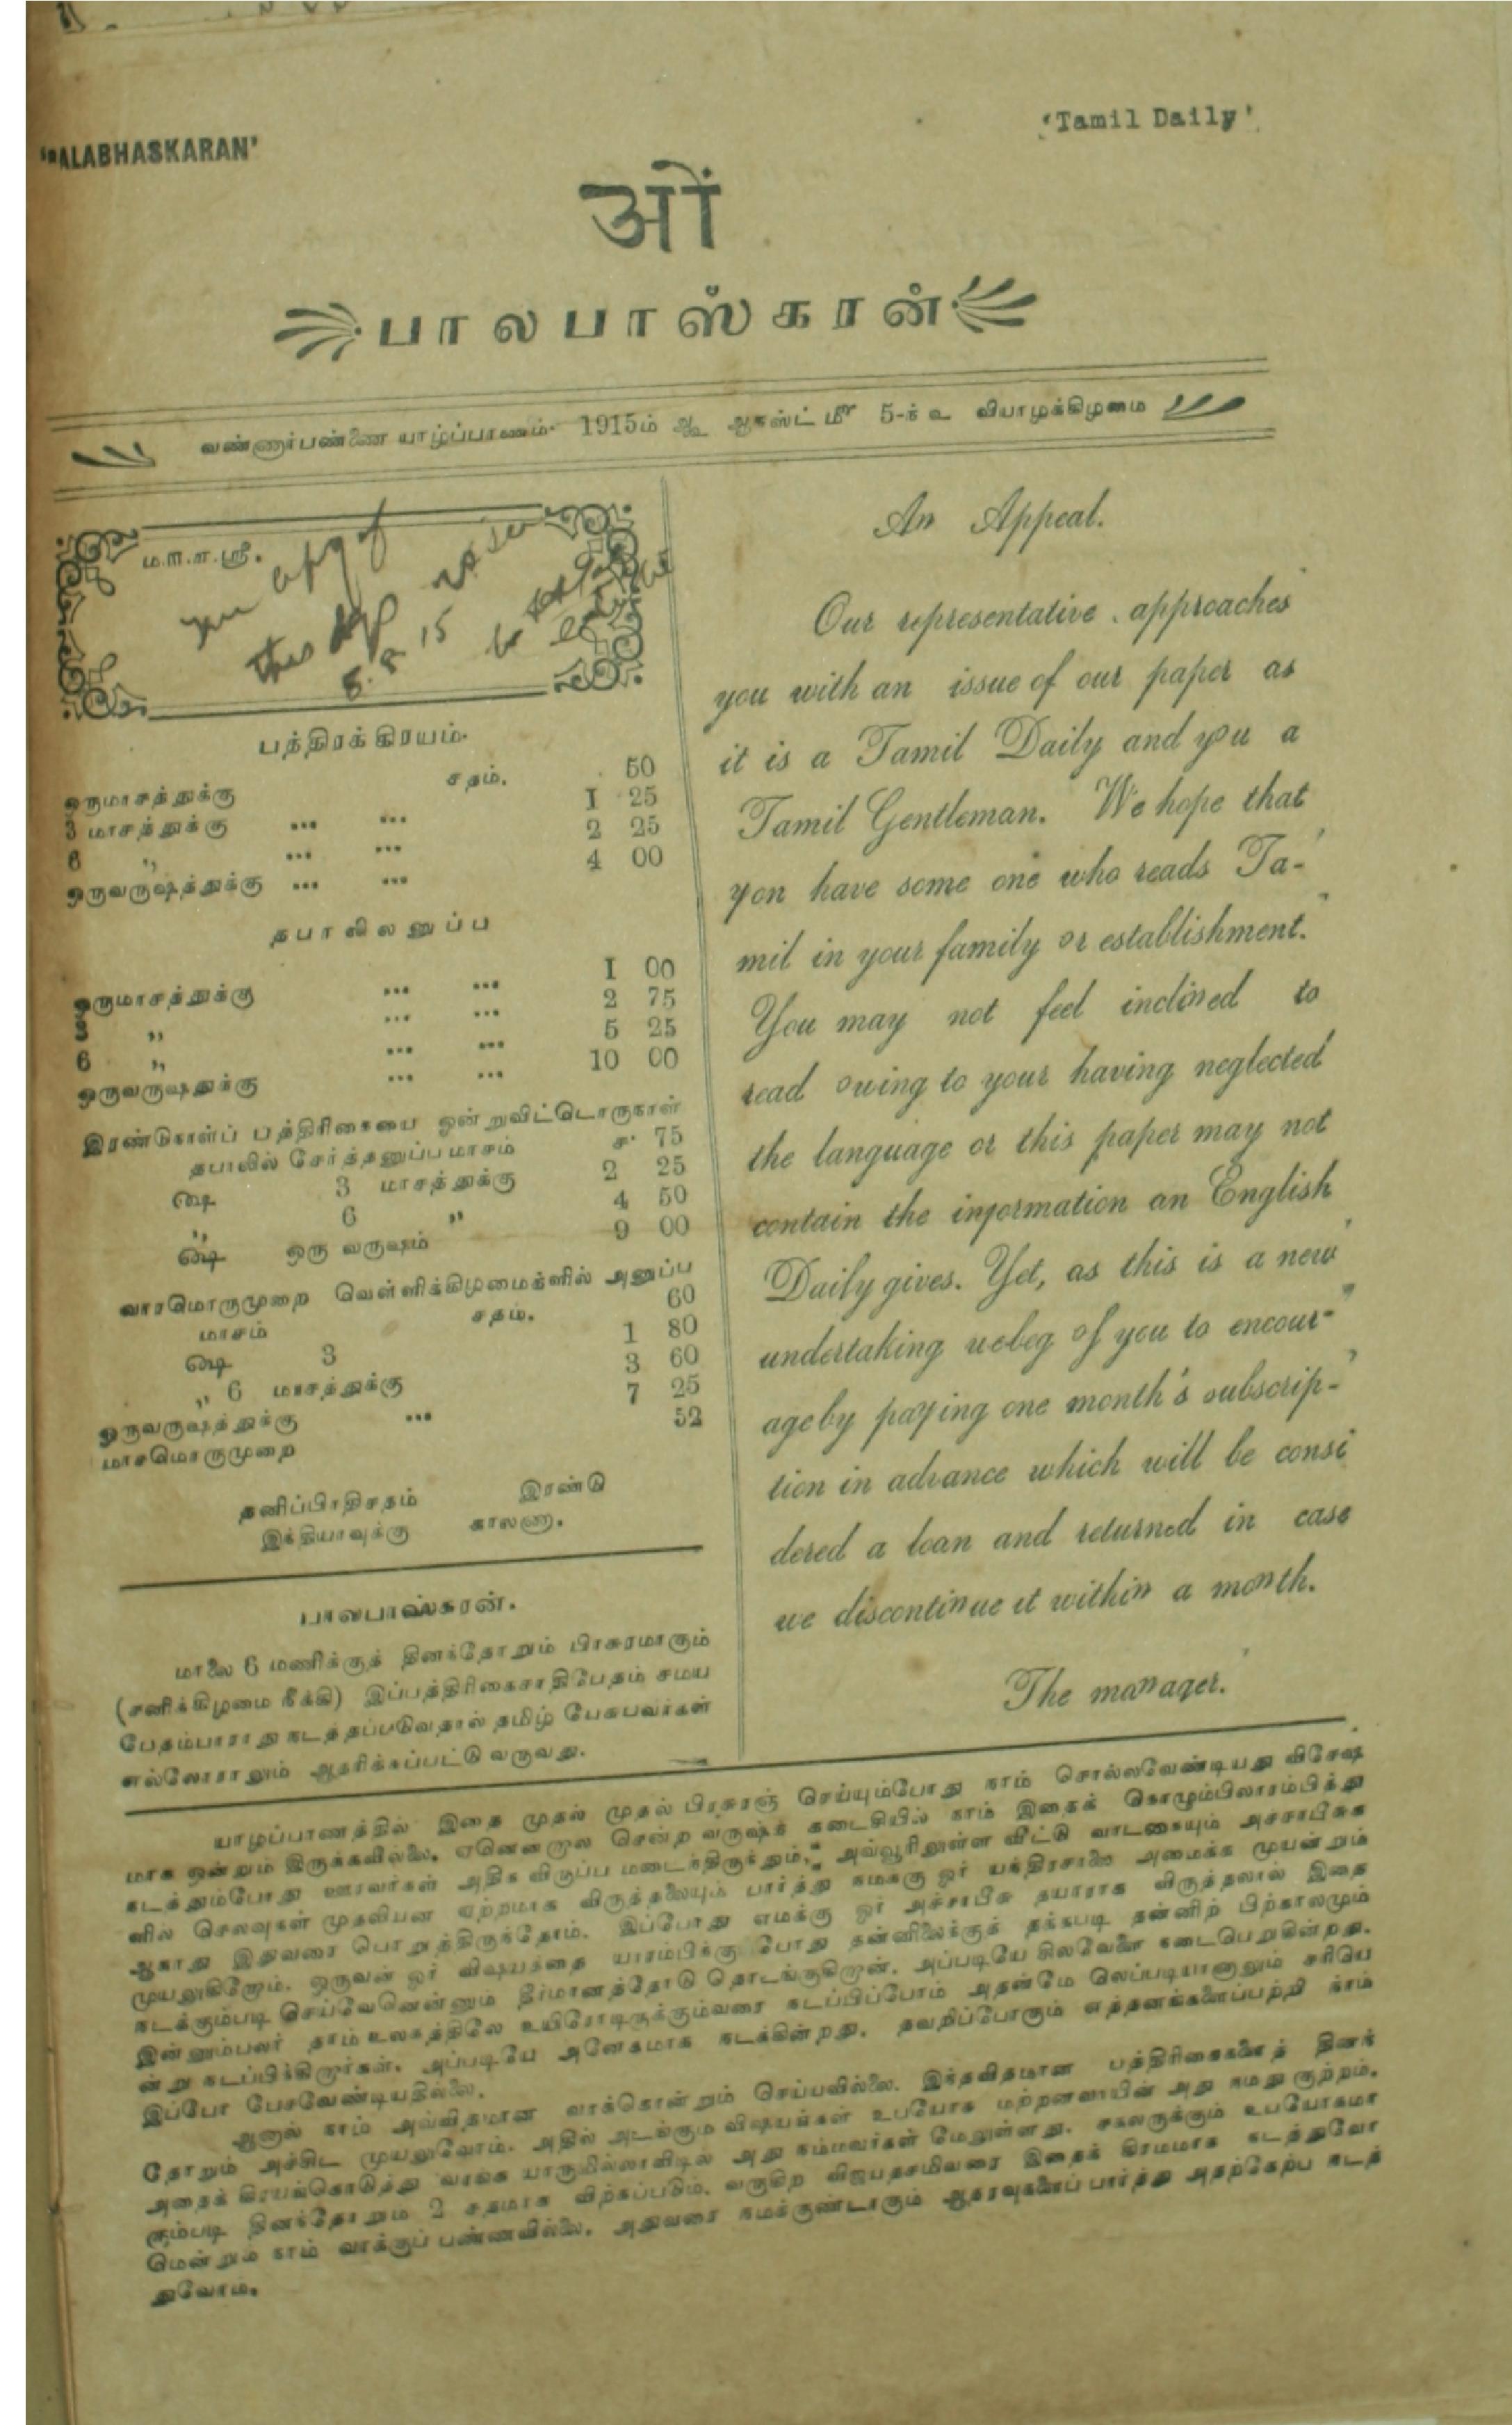 'BALABHASKARAN'
'Tamil Daily'
ओं
பாலபாஸ்கரன்
வண்ணார்பண்ணை யாழ்ப்பாணம். 1915ம் ஆ௵ ஆகஸ்ட் மீ 5-ந் உ வியாழக்கிழமை
ம.ா.ா.ஸ்ரீ.
this
5.8.15
பத்திரக்கிரயம்.
சதம்.
ஒருமாசத்துக்கு 50
3 மாசத்துக்கு ... ... 1 25
6 ,, ... ... 2 25
ஒருவருஷத்துக்கு ... ... 4 00
தபாலிலனுப்ப
ஒருமாசத்துக்கு ... ... 1 00
3 ,, ... ... 2 75
6 ,, ... ... 5 25
ஒருவருஷதுக்கு ... ... 10 00
இரண்டுநாள்ப் பத்திரிகையை ஒன்றுவிட்டொருநாள்
தபாலில் சேர்த்தனுப்பமாசம் ச. 75
ஷெ 3 மாசத்துக்கு 2 25
,, 6 ,, 4 50
ஷெ ஒரு வருஷம் 9 00
வாரமொருமுறை வெள்ளிக்கிழமைகளில் அனுப்ப
மாசம் சதம். 60
ஷெ 3 1 80
,, 6 மாசத்துக்கு 3 60
ஒருவருஷத்துக்கு ... 7 25
மாசமொருமுறை 52
தனிப்பிரதிசதம் இரண்டு
இந்தியாவுக்கு காலணா.
பாலபாஸ்கரன்.
மாலை 6 மணிக்குத் தினந்தோறும் பிரசுரமாகும்
(சனிக்கிழமை நீக்கி) இப்பத்திரிகைசாதிபேதம் சமய
பேதம்பாராது நடத்தப்படுவதால் தமிழ் பேசுபவர்கள்
எல்லோராலும் ஆதரிக்கப்பட்டு வருவது.
An Appeal.
Our representative approaches
you with an issue of our paper as
it is a Tamil Daily and you a
Tamil Gentleman. We hope that
yon have some one who reads Ta-
mil in your family or establishment.
You may not feel inclined to
read owing to your having neglected
the language or this paper may not
contain the information an English
Daily gives. Yet, as this is a new
undertaking webeg of you to encour-
ageby paying one month's subscrip-
tion in advance which will be consi
dered a loan and returned in case
we discontinue it within a month.
The manager.
யாழப்பாணத்தில் இதை முதல் முதல் பிரசுரஞ் செய்யும்போது நாம் சொல்லவேண்டியது விசேஷ
மாக ஒன்றும் இருக்கவில்லை. ஏனென்றால் சென்ற வருஷக் கடைசியில் நாம் இதைக் கொழும்பிலாரம்பித்து
நடத்தும்போது ஊரவர்கள் அதிக விருப்ப மடைந்திருந்தும், அவ்வூரிலுள்ள வீட்டு வாடகையும் அச்சாபிசுக
ளில் செலவுகள் முதலியன ஏற்றமாக விருத்தலையும் பார்த்து நமக்கு ஓர் யந்திரசாலை அமைக்க முயன்றும்
ஆகாது இதுவரை பொறுத்திருந்தோம். இப்போது எமக்கு ஓர் அச்சாபிசு தயாராக விருத்தலால் இதை
முயலுகிறோம். ஒருவன் ஓர் விஷயத்தை யாரம்பிக்கு போது தன்னிலைக்குத் தக்கபடி தன்னிற் பிற்காலமும்
நடக்கும்படி செய்வேனென்னும் தீர்மானத்தோடு தொடங்குகிறான். அப்படியே சிலவேளை நடைபெறுகின்றது.
இன்னும்பலர் தாம் உலகத்திலே உயிரோடிருக்கும்வரை நடப்பிப்போம் அதன்மே லெப்படியானாலும் சரியெ
ன்று நடப்பிக்கிறார்கள். அப்படியே அனேகமாக நடக்கின்றது. தவறிப்போகும் எத்தனங்களைப்பற்றி நாம்
இப்போ பேசவேண்டியதில்லை.
ஆனால் நாம் அவ்விதமான வாக்கொன்றும் செய்யவில்லை. இந்தவிதமான பத்திரிகைகளைத் தினந்
தோறும் அச்சிட முயலுவோம். அதில் அடங்கும் விஷயங்கள் உபயோக மற்றனவாயின் அது நமது குற்றம்.
அதைக் கிரயங்கொடுத்து வாங்க யாருமில்லாவிடில் அது நம்மவர்கள் மேலுள்ளது. சகலருக்கும் உபயோகமா
கும்படி தினந்தோறும் 2 சதமாக விற்கப்படும். வருகிற விஜயதசமிவரை இதைக் கிரமமாக நடத்துவோ
மென்றும் நாம் வாக்குப் பண்ணவில்லை. அதுவரை நமக்குண்டாகும் ஆதரவுகளைப் பார்த்து அதற்கேற்ப நடத்
துவோம்.